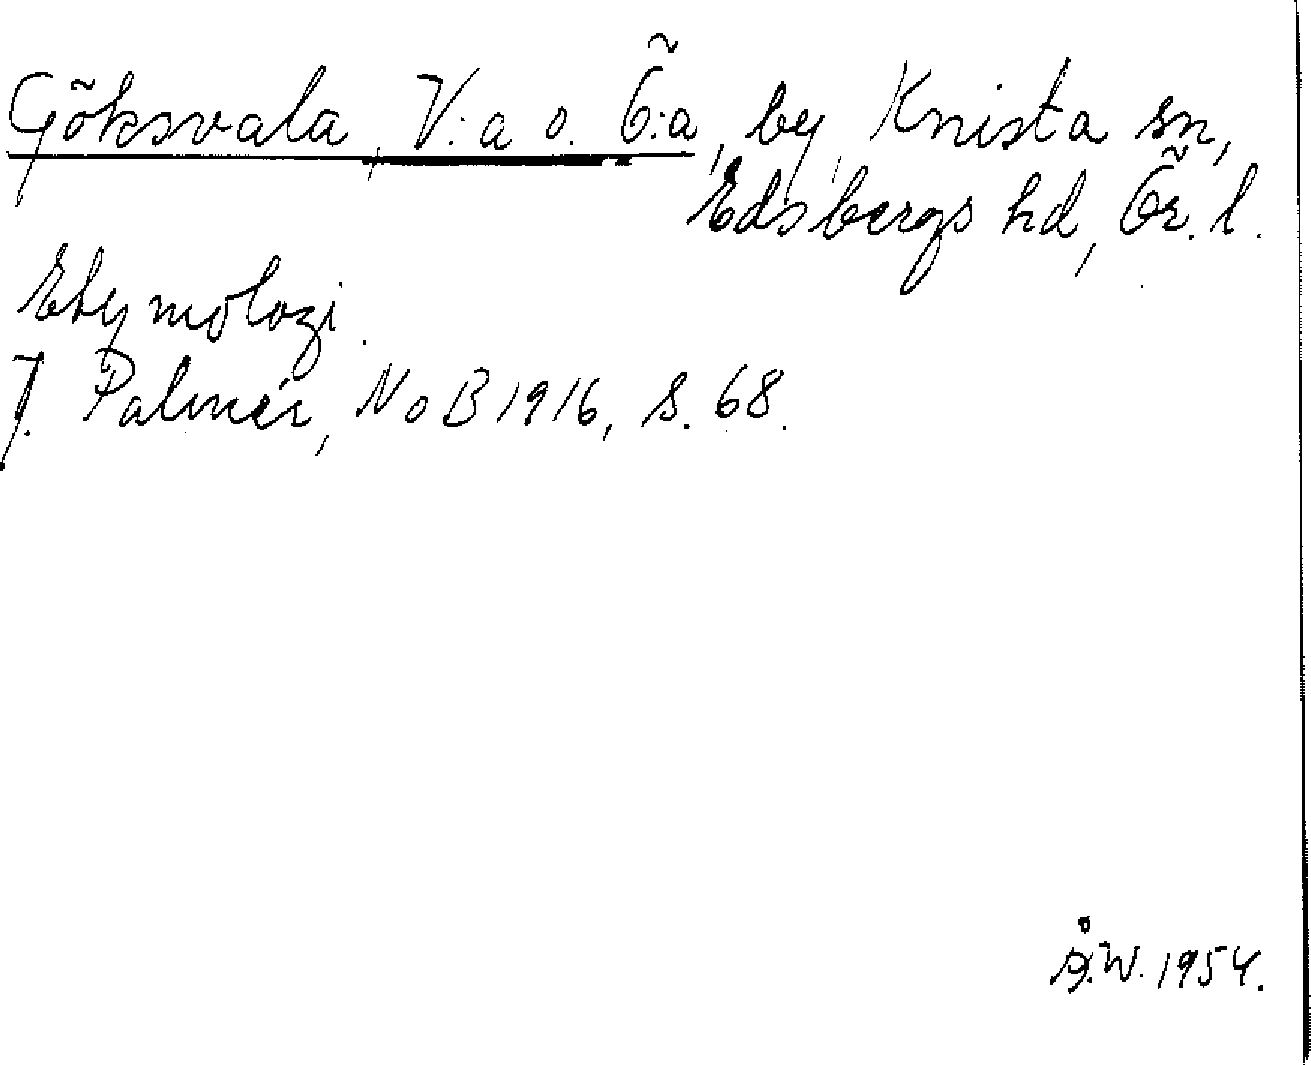 Göksvala, V:a o. Ö:a, by, Knista sn,
Edsbergs hd, Ör. l.
Etymologi.
J. Palmér, NoB 1916, s. 68.
Å.W. 1954.